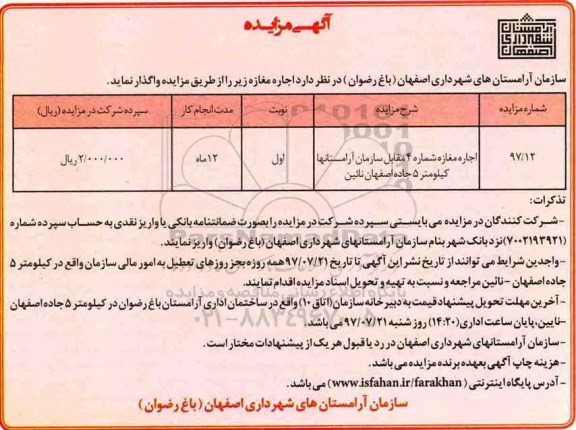 آگهی مزایده
آرامستان
شهرداری
اصفهان
سازمان آرامستان های شهرداری اصفهان (باغ رضوان) در نظر دارد اجاره مغازه زیر را از طریق مزایده واگذار نماید.
شماره مزایده شرح مزایده نوبت مدت انجام کار سپرده شرکت در مزایده (ریال)
۹۷/۱۲ اجاره مغازه شماره ۴ مقابل سازمان آرامستانها اول ۱۲ ماه ۲/۰۰۰/۰۰۰ ریال
کیلومتر ۵ جاده اصفهان نائین
تذکرات:
-شرکت کنندگان در مزایده می بایستی سپرده شرکت در مزایده را بصورت ضمانتنامه بانکی یا واریز نقدی به حساب سپرده شماره
(۷۰۰۲۱۹۳۹۲۱) نزد بانک شهر بنام سازمان آرامستانهای شهرداری اصفهان (باغ رضوان) واریز نمایند.
-واجدین شرایط می توانند از تاریخ نشر این آگهی تا تاریخ ۹۷/۰۷/۲۱ همه روزه بجز روزهای تعطیل به امور مالی سازمان واقع در کیلومتر ۵
جاده اصفهان - نائین مراجعه و نسبت به تهیه و تحویل اسناد مزایده اقدام نمایند.
-آخرین مهلت تحویل پیشنهاد قیمت به دبیرخانه سازمان (اتاق۱۰) واقع در ساختمان اداری آرامستان باغ رضوان در کیلومتر ۵ جاده اصفهان
-نایین، پایان ساعت اداری (۱۴:۲۰) روز شنبه ۹۷/۰۷/۲۱ می باشد.
-سازمان آرامستانهای شهرداری اصفهان در رد یا قبول هر یک از پیشنهادات مختار است.
-هزینه چاپ آگهی بعهده برنده مزایده می باشد.
- آدرس پایگاه اینترنتی (www.isfahan.ir/farakhan) می باشد.
سازمان آرامستان های شهرداری اصفهان (باغ رضوان)
۰۲۱-۸۸۳۴۹۶۷۰-۵